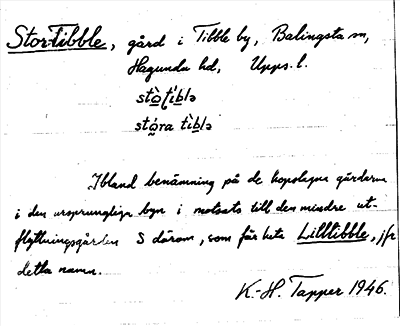 Stor-Tibble, gård i Tibble by, Balingsta sn,
Hagunda hd, Upps. l.
stò̱ tíḇlə
stó̱ra tìḇlə
Ibland benämning på de kopslagna gårdarna
i den ursprungliga byn i motsats till den mindre ut-
flyttningsgården S därom, som får heta Lilltibble, jfr
detta namn.
K.-H. Tapper 1946.